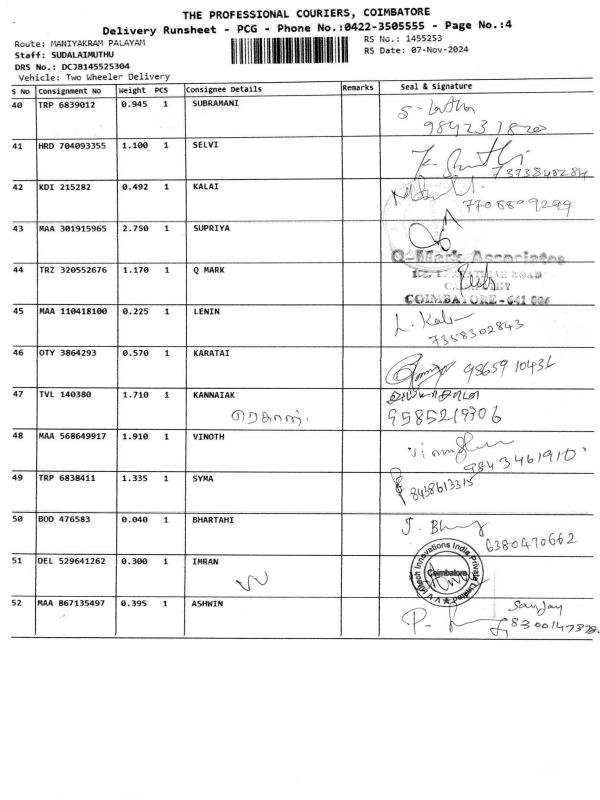 THE PROFESSIONAL COURIERS, COIMBATORE
Delivery Runsheet - PCG - Phone No.:0422-3505555 - Page No.:4
Route: MANIYAKRAM PALAYAM
RS No.: 1455253
Staff: SUDALAIMUTHU
RS Date: 07-Nov-2024
DRS No.: DCJB145525304
Vehicle: Two Wheeler Delivery
S No Consignment No Weight PCS Consignee Details Remarks Seal & Signature
40 TRP 6839012 0.945 1 SUBRAMANI
41 HRD 704093355 1.100 1 SELVI
7373848284
42 KDI 215282 0.492 1 KALAI
7708809299
43 MAA 301915965 2.750 1 SUPRIYA
Q-Mark Associates
44 TRZ 320552676 1.170 1 Q MARK
COIMBATORE - 641 006
45 MAA 110418100 0.225 1 LENIN
7358302843
46 OTY 3864293 0.570 1 KARATAI
98659 10431
47 TVL 140380 1.710 1 KANNAIAK
9585219706
48 MAA 568649917 1.910 1 VINOTH
9843461910
49 TRP 6838411 1.335 1 SYMA
8438613315
50 BOD 476583 0.040 1 BHARTAHI
6380470662
51 DEL 529641262 0.300 1 IMRAN
Hitech Innovations India Private Limited
Coimbatore
52 MAA 867135497 0.395 1 ASHWIN
Sanjay